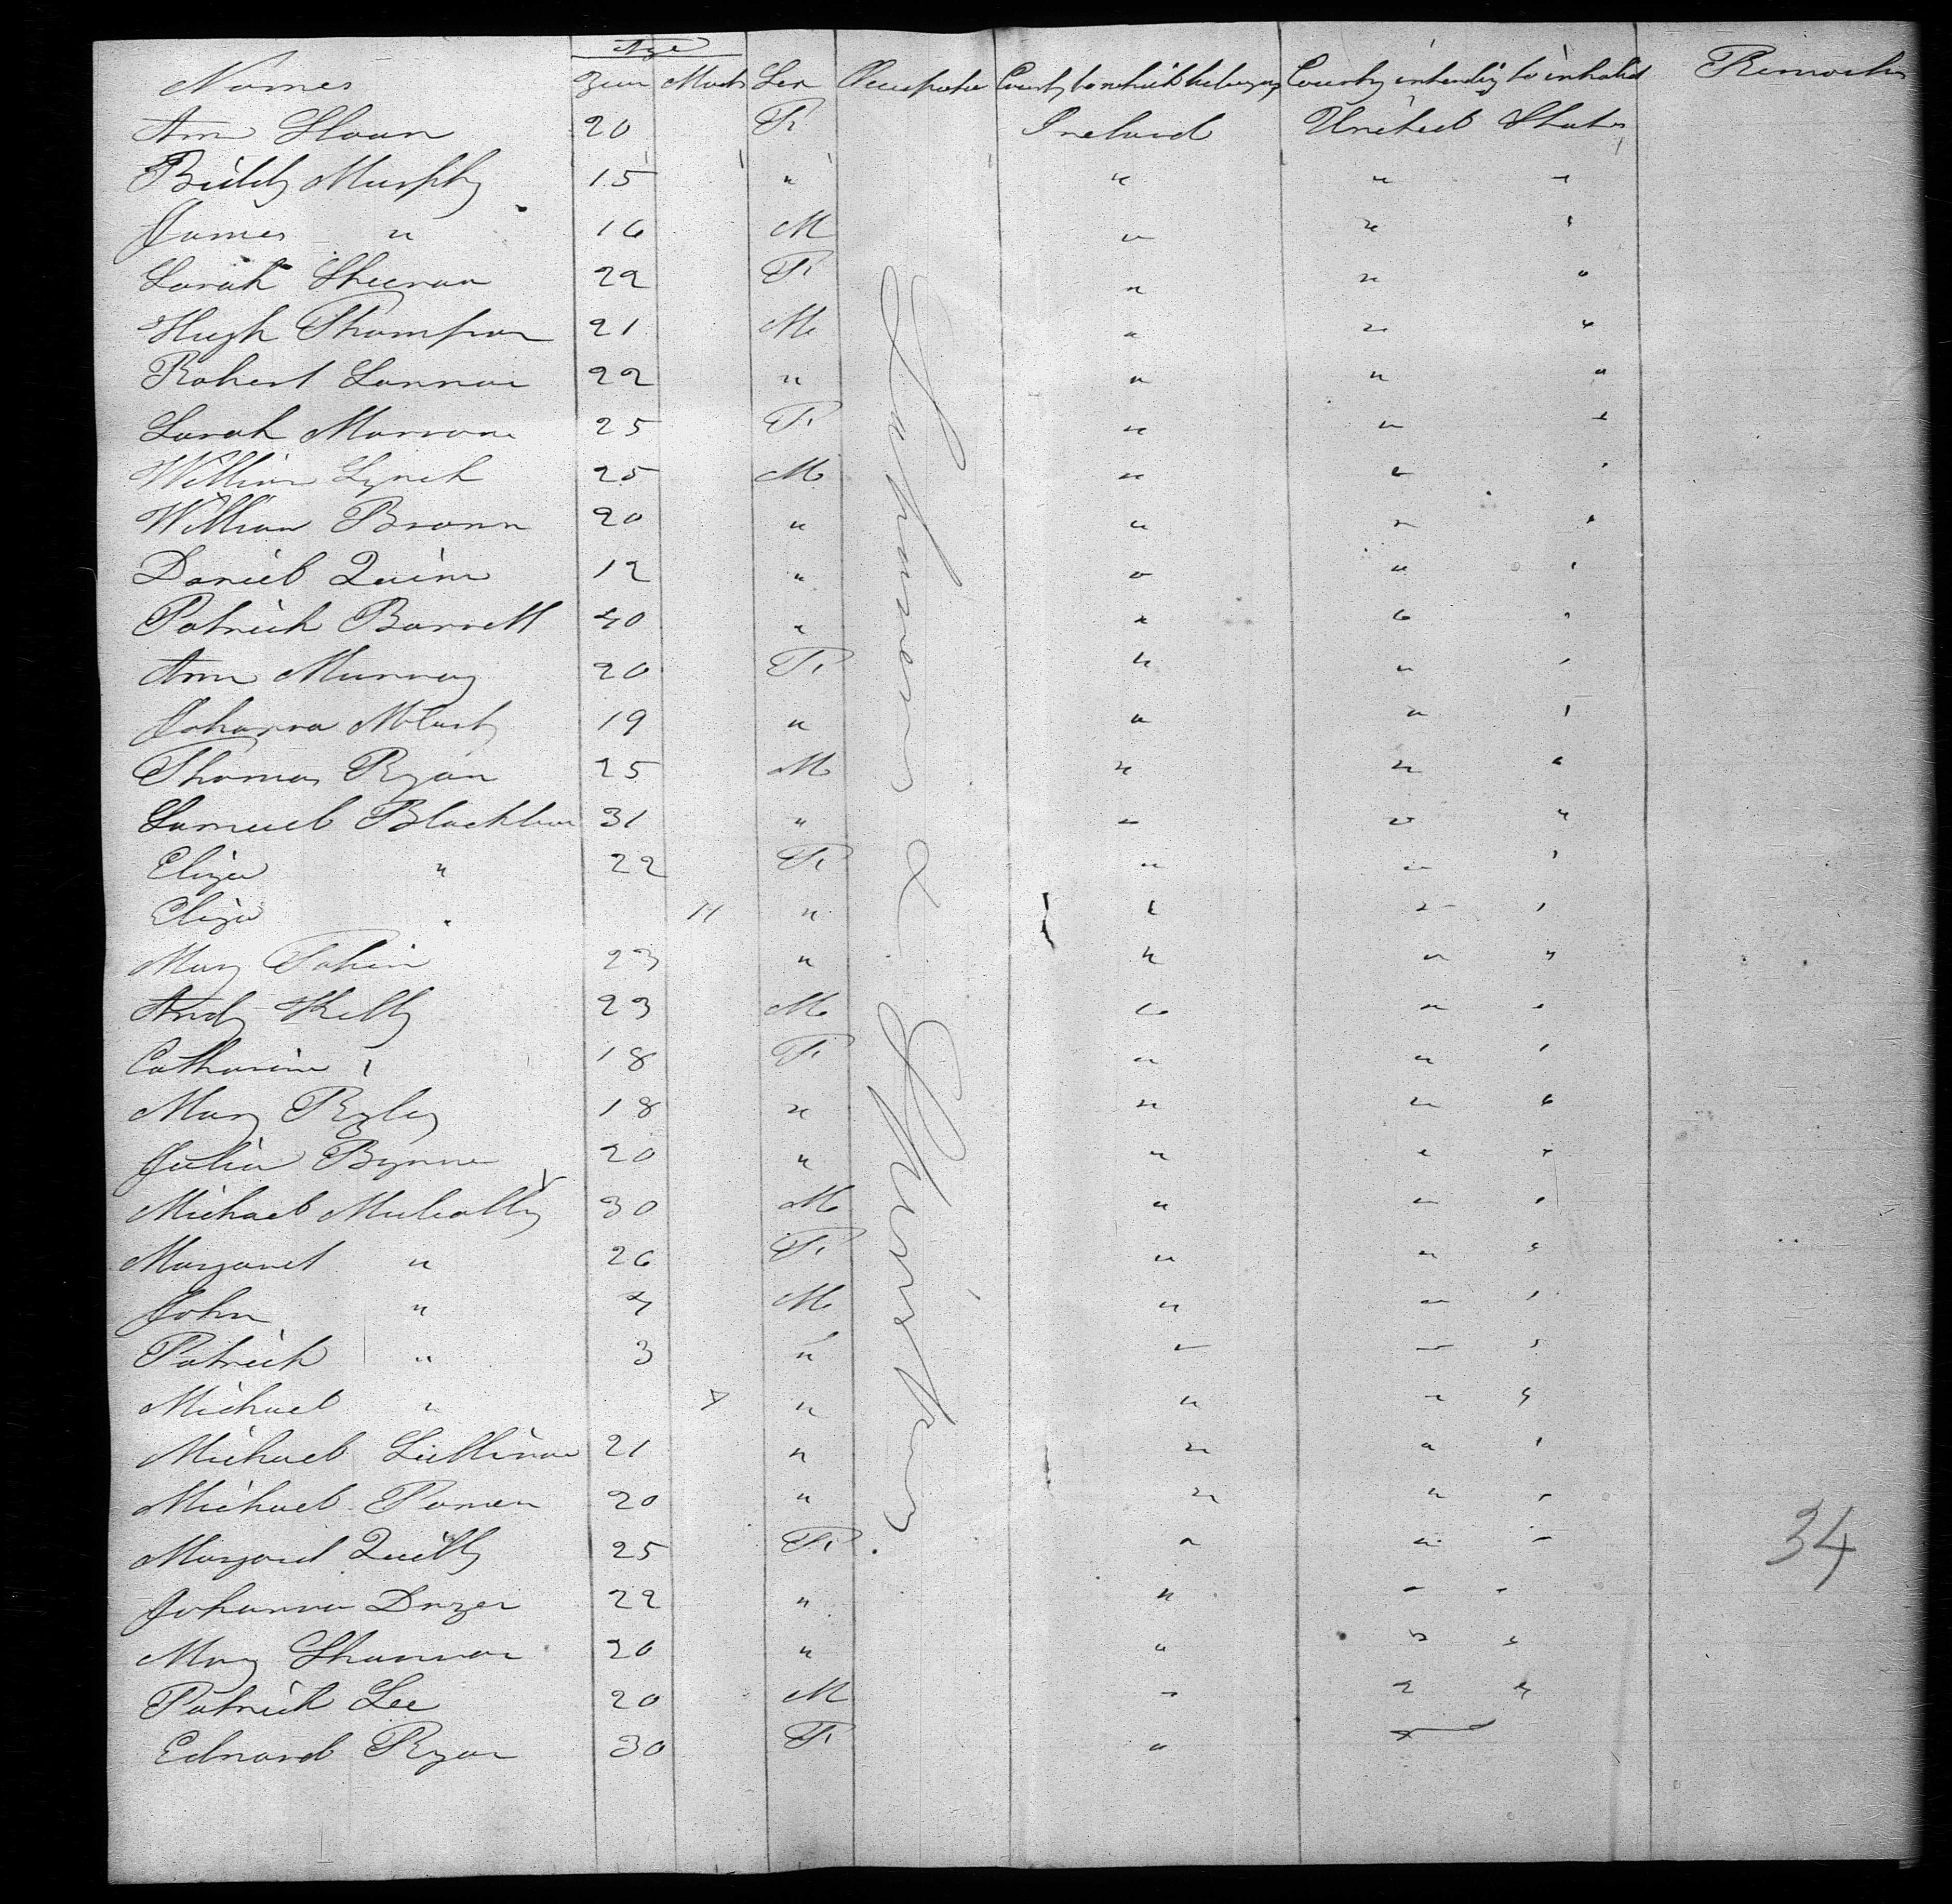 Age
Names Year Month Sex Occupation Country to which belonging Country intending to inhabit Remarks
Ann Sloan 20 F Ireland United States
Biddy Murphy 15 " " " "
James " 16 M " " "
Sarah Sheeran 22 F " " "
Hugh Thompson 21 M " " "
Robert Lennon 22 " " " "
Sarah Marron 25 F " " "
William Lynch 25 M " " "
William Brown 20 " " " "
Daniel Quinn 12 " " " "
Patrick Barrett 40 " " " "
Ann Murray 20 F " " "
Johanna 19 " " " "
Thomas Ryan 25 M " " "
Samuel Blackburn 31 " " " "
Eliza " 22 F " " "
Eliza " 11 " " " "
Mary Tobin 23 " " " "
Andy Kelly 23 M " " "
Catharine " 18 F " " "
Mary Ryley 18 " " " "
Julia Byrne 20 " " " "
Michael Mulcally 30 M " " "
Margaret " 26 F " " "
John " 4 M " " "
Patrick " 3 " " " "
Michael " " " " "
Michael Sullivan 21 " " " "
Michael Power 20 " " " "
Margaret Quilty 25 F " " "
Johanna Dwyer 22 " " " "
Mary Shannon 20 " " " "
Patrick Lee 20 M " " "
Edward Ryan 30 F " "
Labourers & Servants
34